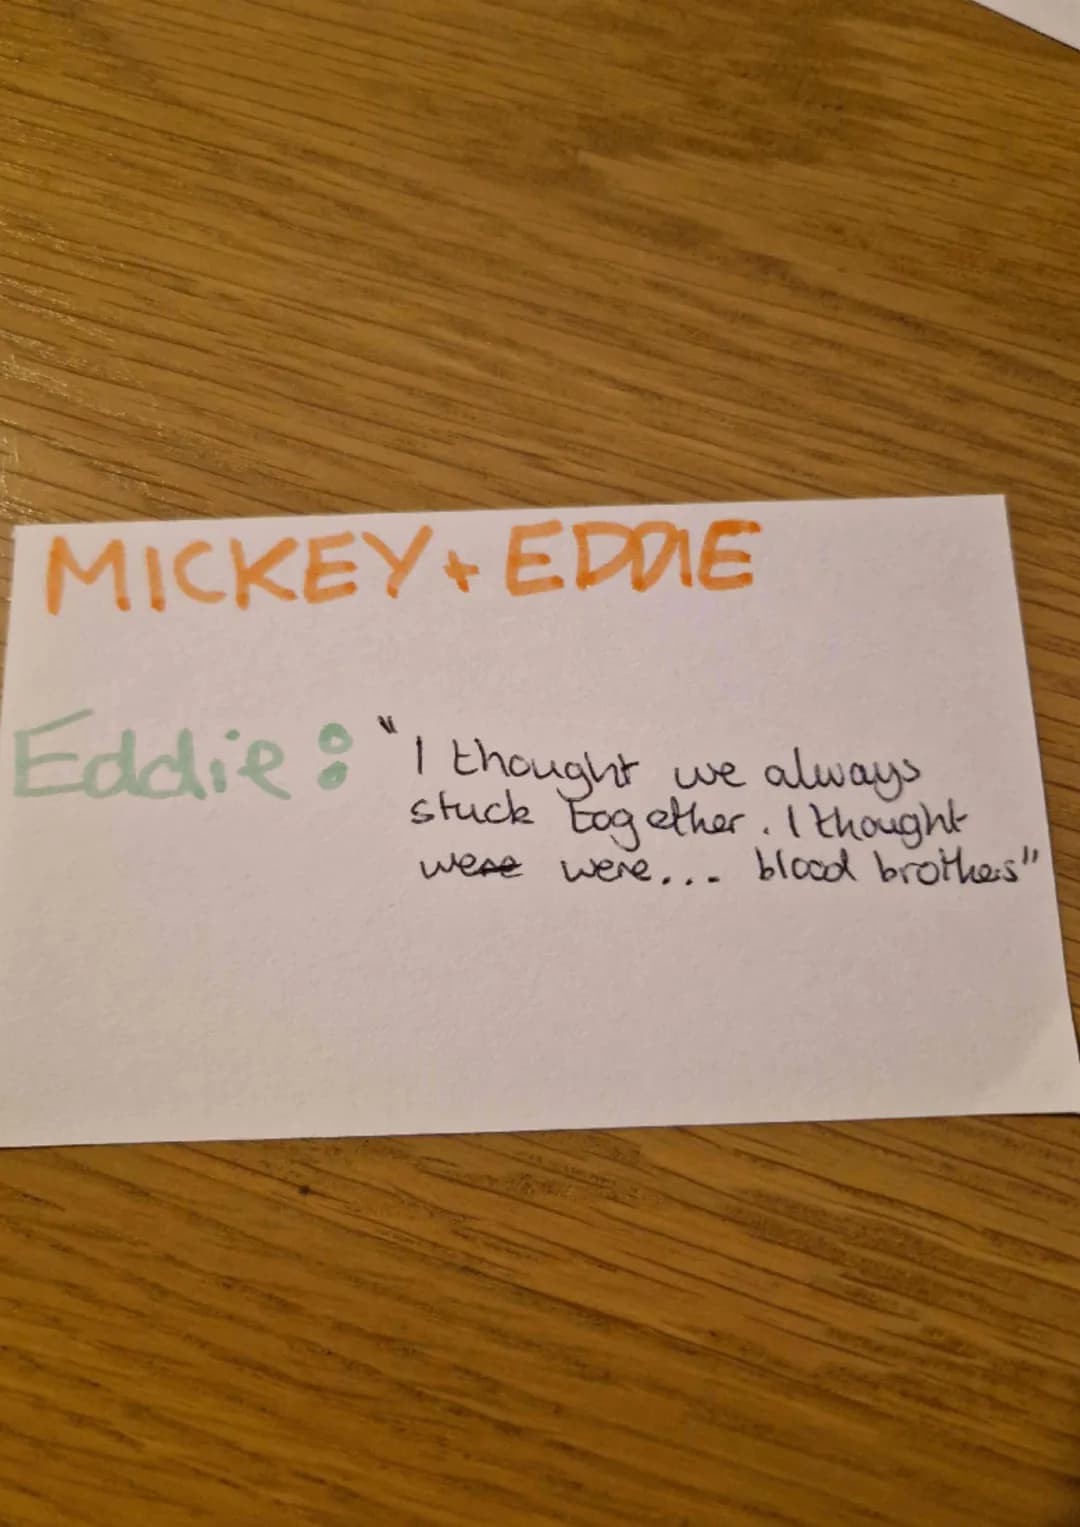 MICKEY + EDDIE
Eddie: "I thought we always
stuck together. I thought
were were... blood brothers"